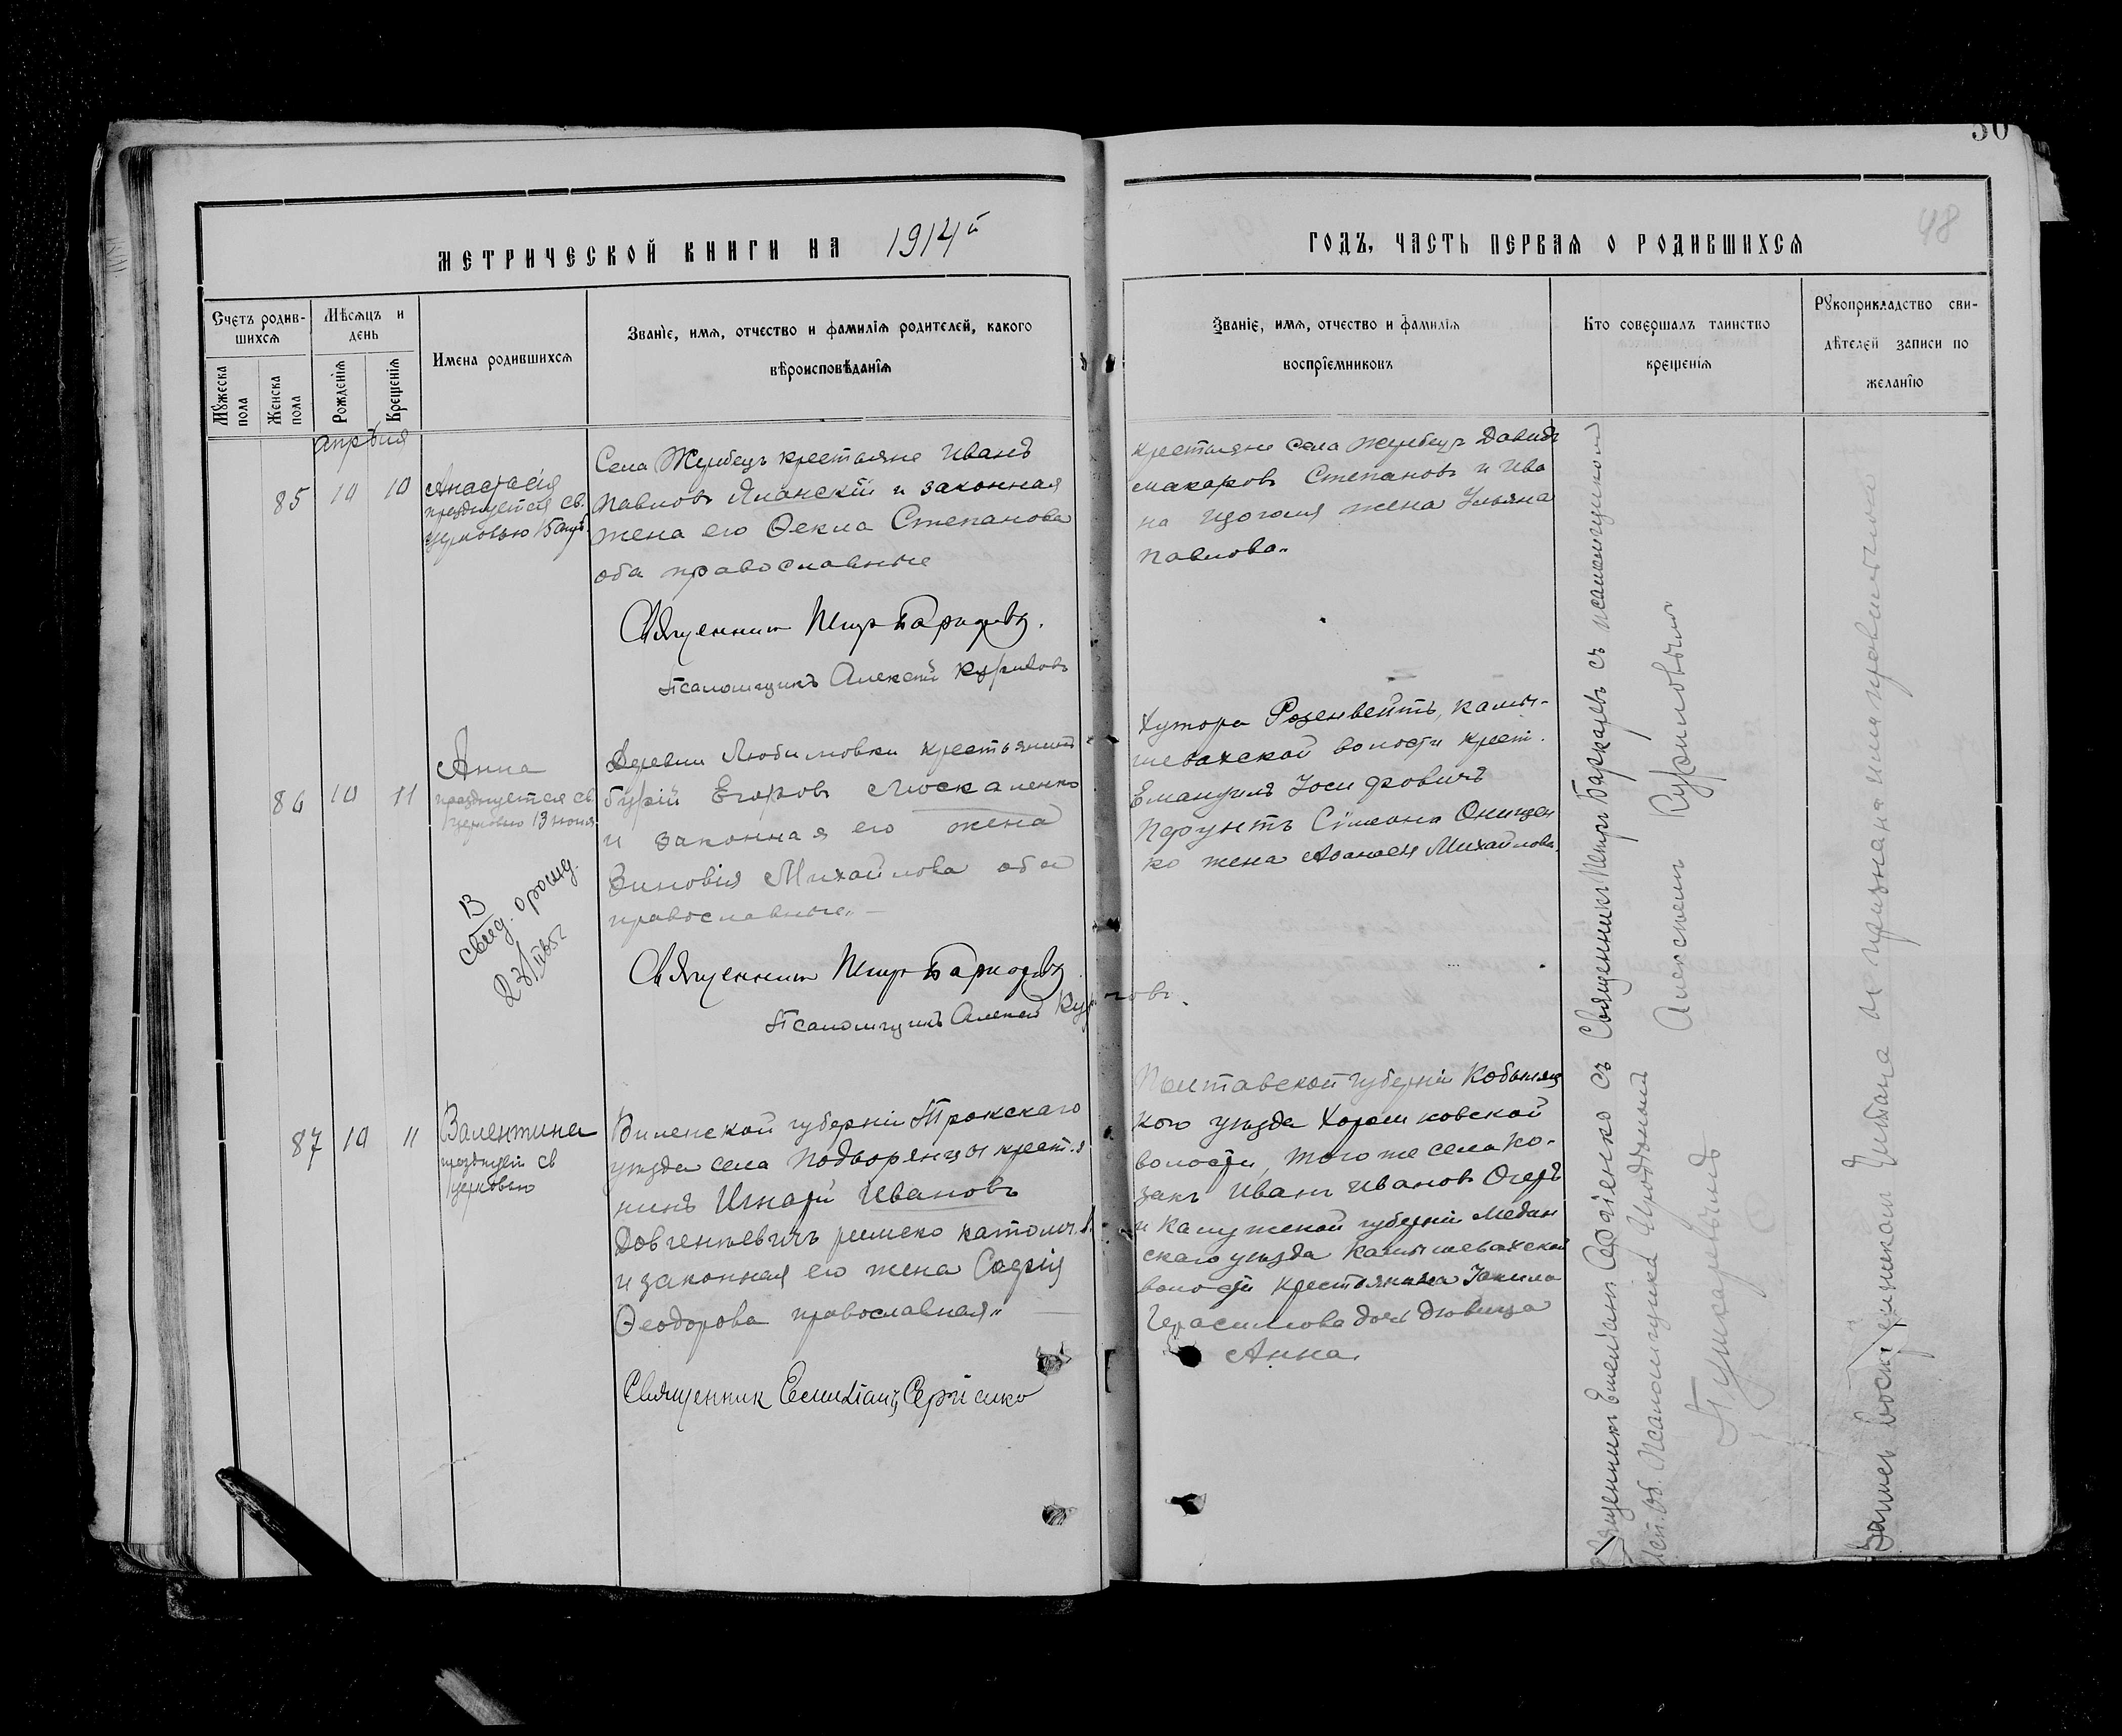 50
48
МЕТРИЧЕСКОЙ КНИГИ НА 1914й
ГОДЪ, ЧАСТЬ ПЕРВАЯ О РОДИВШИХСЯ
Счетъ родив-
шихся
Мужеска
пола
Женска
пола
Мѣсяцъ и
день
Рожденія
Крещенія
Имена родившихся
Званіе, имя, отчество и фамилія родителей, какого
вѣроисповѣданія
Званіе, имя, отчество и фамилія
воспріемниковъ
Кто совершалъ таинство
крещенія
Рукоприкладство сви-
дѣтелей записи по
желанію
апрѣля
85 10 10
Анастасія
празднуется св.
церковью
Села Жеребецъ крестьяне Иванъ
Павловъ и законная
жена его Ѳекла Степанова
оба православные
Священникъ Петръ
Псаломщикъ Алексѣй Куриловъ
крестьяне села Жеребецъ Давидъ
Макаровъ Степановъ и Ива
на жена Ульяна
Павлова.
86 10 11
Анна
празднуется св.
церковью 13
13
свид. о рожд.
Деревни Любимовки крестьянинъ
Гурій Егоровъ Москаленко
и законная его жена
Зиновія Михайлова оба
православные
Священникъ Петръ
Псаломщикъ Алексѣй Куриловъ.
Хутора Розенвейтъ, камы-
шевахской волости крест.
Емануилъ Іосифовичъ
Пфунтъ Сімеона Онищен
ко жена Михайлова.
87 10 11
Валентина
празднует св
церковью
Виленской губерніи Трокскаго
уѣзда села Подворянцы крестья
нинъ Игнатій Ивановъ
Довгенлевичъ римско католич.
и законная его жена Софія
Ѳеодорова православная
Священник Емиліанъ Сергіенко
Полтавской губерніи Кобыляц
кого уѣзда Хорошковской
волости, того же села ко-
закъ Иванъ Ивановъ Огерь
и Калужской губерніи Медын
скаго уѣзда Камышевахской
волости крестьянина Іакима
Герасимова дочь дѣвица
Анна.
Священникъ Емиліанъ Сергіенко съ Священникъ Петръ съ псаломщикомъ
Псаломщика Алексѣемъ Куриловымъ
Пушкаревымъ
Запись читана и признана ими правильною